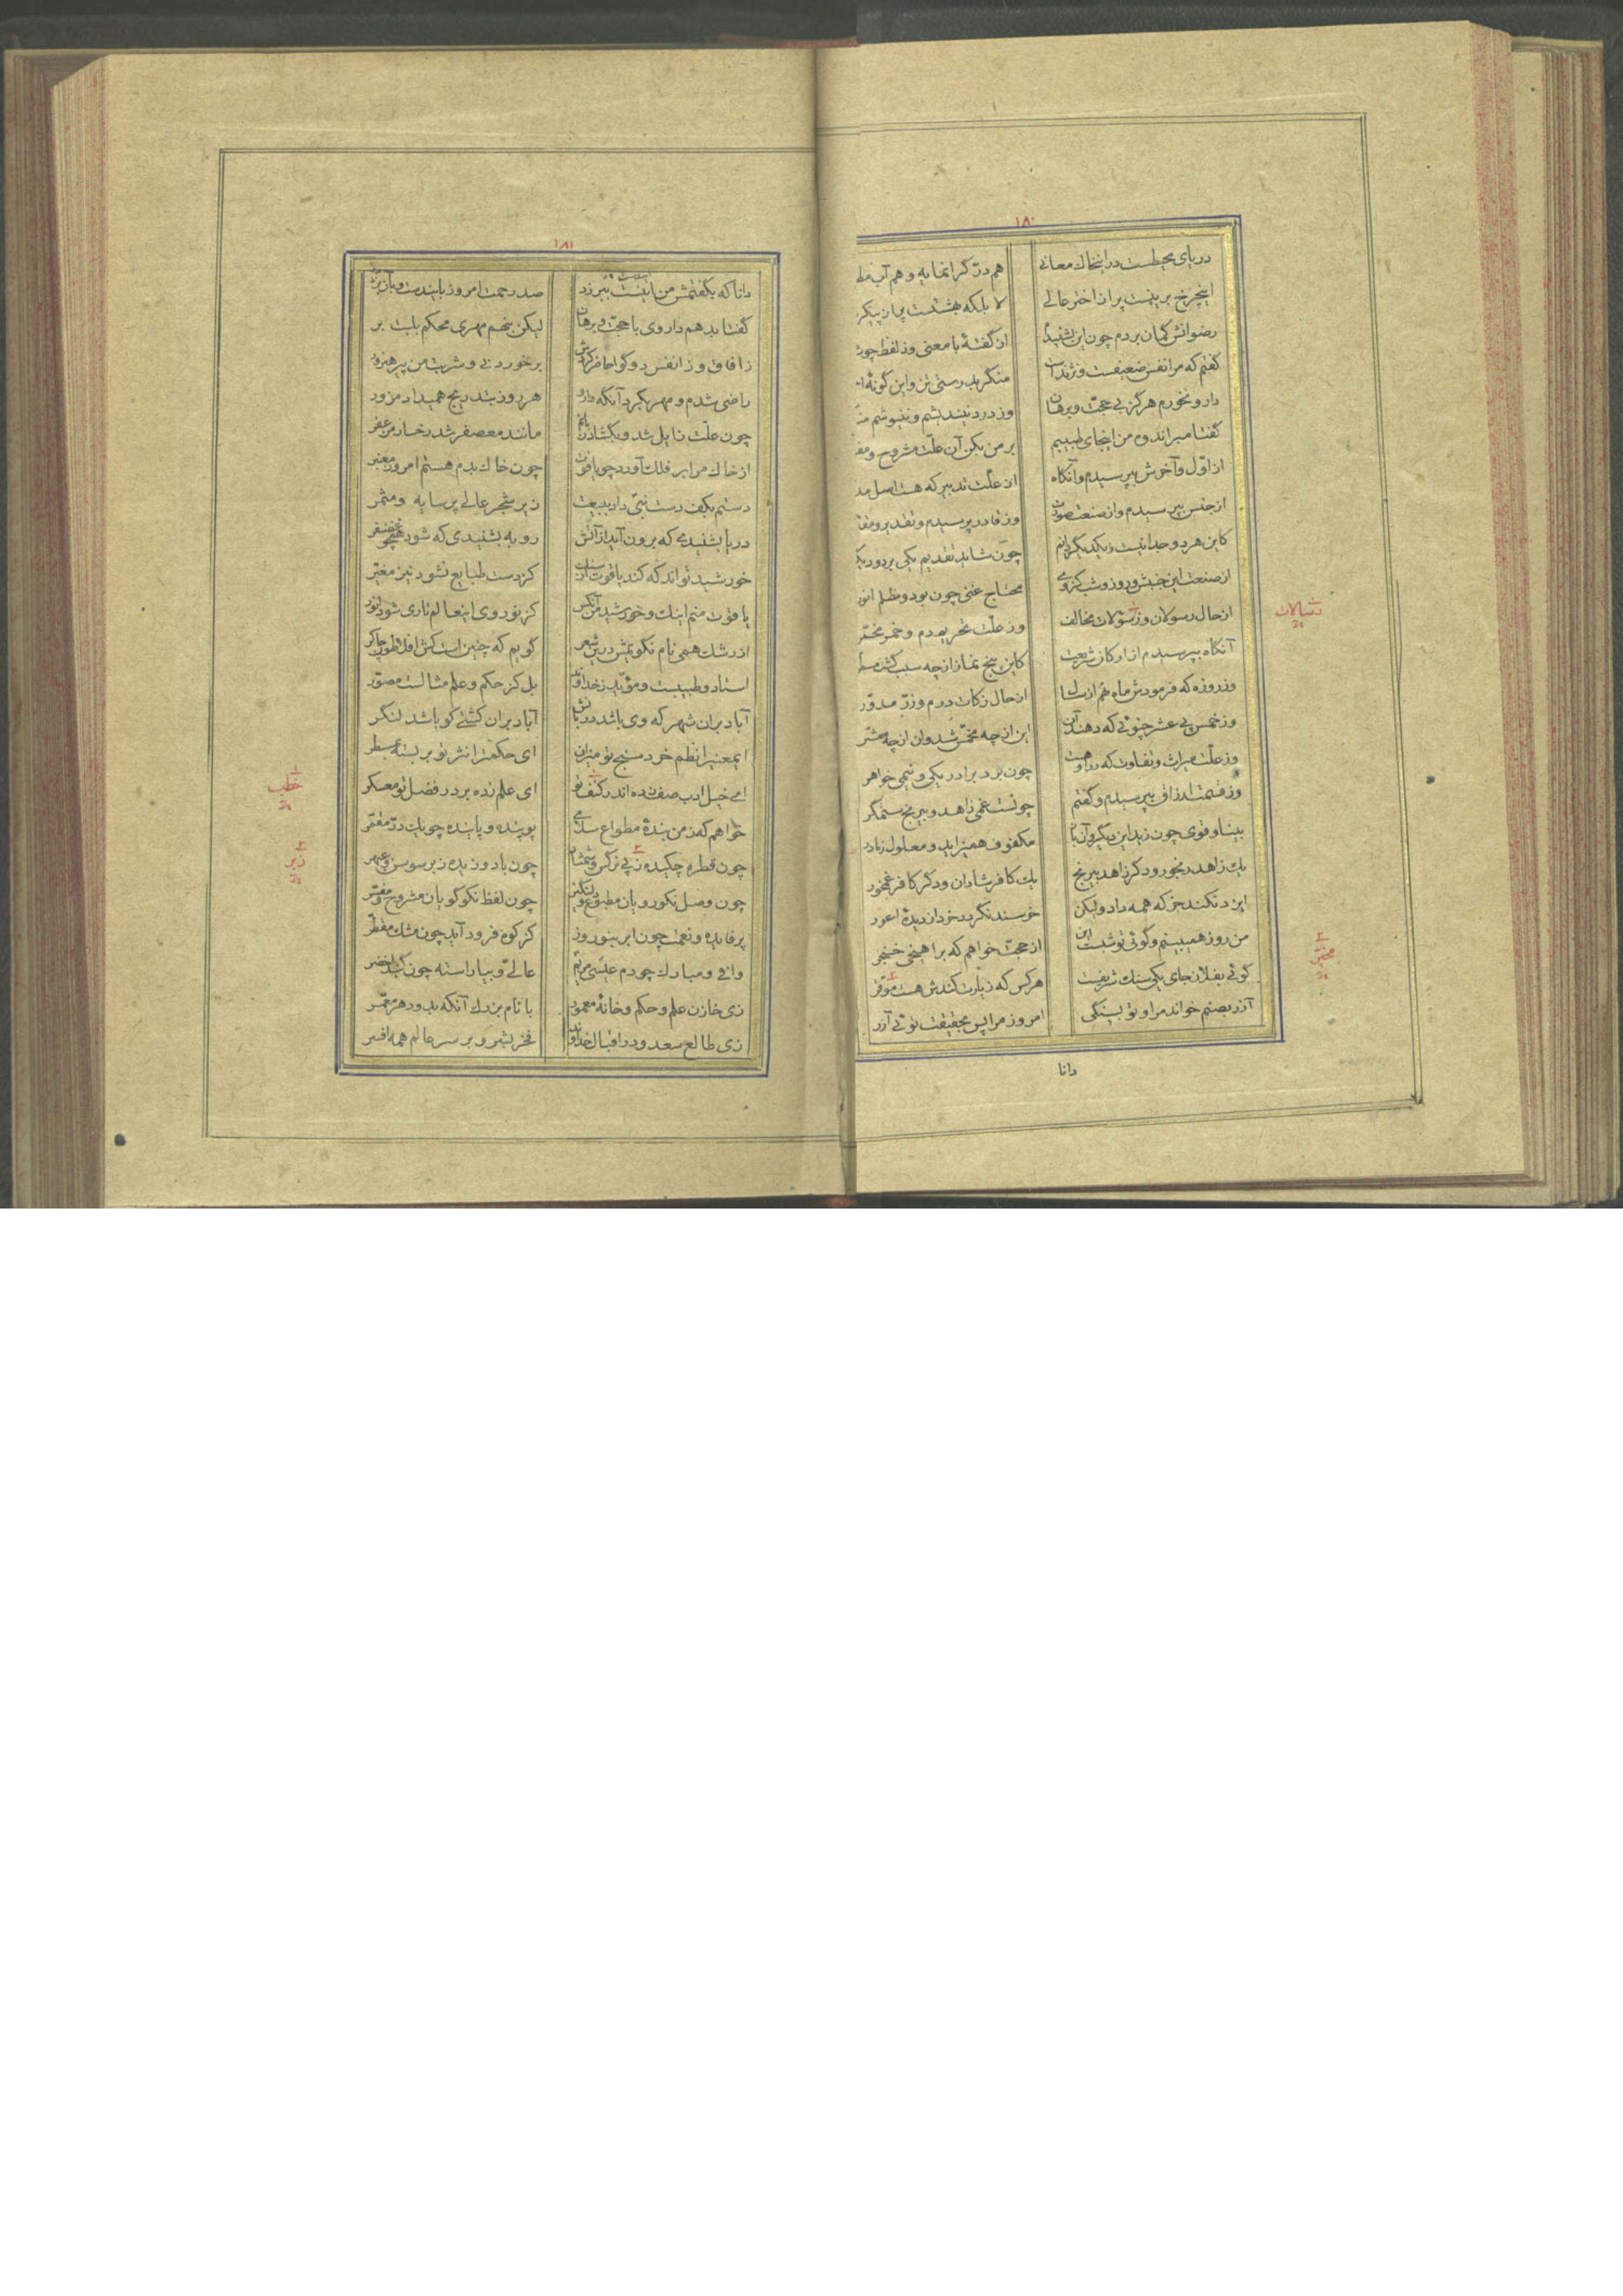 ۱۸۰
دریای محیطست در اینخاک معانی هم درّ گرانمایه و هم آب مط
اینچرخ برینست پر از اختر عالی لا بلکه بهشتست پر از پیکر
رضوانش گمان بردم چون این بشنیدم از گفتهٔ با معنی وز لفظ چو
گفتم که مرا نفس ضعیفست و نژندست منگر بدرستی تن و این گونهٔ
دارو نخورم هرگز بی حجّت و برهان وز درد نیندیشم و ننیوشم
گفتا مبر اندوه من اینجای طبیبم بر من بکن آن علّت مشروح و
از اوّل و آخرش بپرسیدم و آنگاه از علّت تدبیر که هست اصل
از جنس بپرسیدم و از صنعت صورت وز قادر پرسیدم و تقدیر و
کاین هر دو جدا نیست ز یکدیگر دایم چون شاید تقدیم یکی بر دو
از صنعت این جنبش و روز و شب کز وی محتاج غنی چون بود و مظلم انور
از حال رسولان وز سؤلات مخالف وز علّت تحریم دم و خمر مخمّر
رسالات
آنگاه بپرسیدم از ارکان شریعت کاین پنج نماز از چه سبب گشت
وز روزه که فرمودش ماه نهم از سال از حال زکات درم و زرّ مدوّر
وز خمس پی عشر چنوئی که دهند آب این از چه مخمّس شد و آن از چه معشّر
وز علّت میراث و تفاوت که در او هست چون برد برادر یکی و نیمی خواهر
وز قسمت ارزاق بپرسیدم و گفتم چونست غمی زاهد و بیرنج ستمگر
بینا و قوی چون زید این دیگر و آن باز مکفوف همیزاید و معلول ز مادر
یک زاهد رنجور و دگر زاهد بیرنج یک کافر شادان و دگر کافر غمخور
ایزد نکند جز که همه داد ولیکن خرسند نگردد خرد از دیدهٔ اعور
من روز همیبینم و گوئی تو شبست این از حجّت خواهم که برآهیخی خنجر
گوئی بفلان جای یکی سنگ شریفست هر کس که زیارت کندش هست موقّر
محرّر
آزر بصنم خواند مرا و تو بسنگی امروز مرا پس بحقیقت توئی آزر
دانا
۱۸۱
دانا که بگفتمش من اینست ببر زد صد رحمت امروز باین دست و بآن بر
گفتا بدهم داروی با حجّت و برهان لیکن بنهم مهری محکم بلبت بر
ز آفاق وز انفس دو گوا حاضر کردش بر خوردنی و شربت من پیر هنرور
راضی شدم و مهر بکرد آنگه دارو هر روز بتدریج همیداد مزوّر
چون علّت زایل شد و بگشاد زبانم مانند معصفر شد رخسار مزعفر
از خاک مرا بر فلک آورد چو یاقوت چون خاک بدم هستم امروز معنبر
دستم بکف دست نبیّ داد ببیعت زیر شجر عالی پر سایه و مثمر
دریا بشنیدی که برون آید از آتش روبه بشنیدی که شود همچو غضنفر
خورشید تواند که کند یاقوت از سنگ کز دست طبایع نشود نیز مغیّر
یاقوت منم اینک و خورشید من آنکس کز نور وی اینعالم تاری شود انور
از رشک همی نام نگویمش درین شعر گویم که چنین است کش افلاطون چاکر
استاد و طبیبست و مؤیّد ز خداوند بل کز حکم و علم مثالست مصوّر
آباد بر آن شهر که وی باشد دربانش آباد بر آن کشتی کو باشد لنگر
ای معنی را نظم خرد سنج تو میزان ای حکمت را نثر تو بر بسته مسطر
ای خیل ادب صف زده اندر کنف تو ای علم زده بر در فضل تو معسکر
خطب
خواهم که ز من بندهٔ مطواع سلامی پوینده و پاینده چو یک درّ مقمّر
چون قطره چکیده ز پی نرگس و شمشاد چون باد وزیده زبر سوسن و عبهر
زیر
چون وصل نکورویان مطبوع و دلنگیز چون لفظ نکوگویان مشروح و مفسّر
پر فایده و نعمت چون ابر بنوروز کز کوه فرود آید چون مشک مقطّر
وافی و مبارک چو دم عیسی مریم عالی و بیاراسته چون گنبد اخضر
زی خازن علم و حکم و خانهٔ معمور با نام بزرگ آنکه بدو دهر معمّر
زی طالع سعد و در اقبال خداوند فخر بشر و بر سر عالم همه افسر